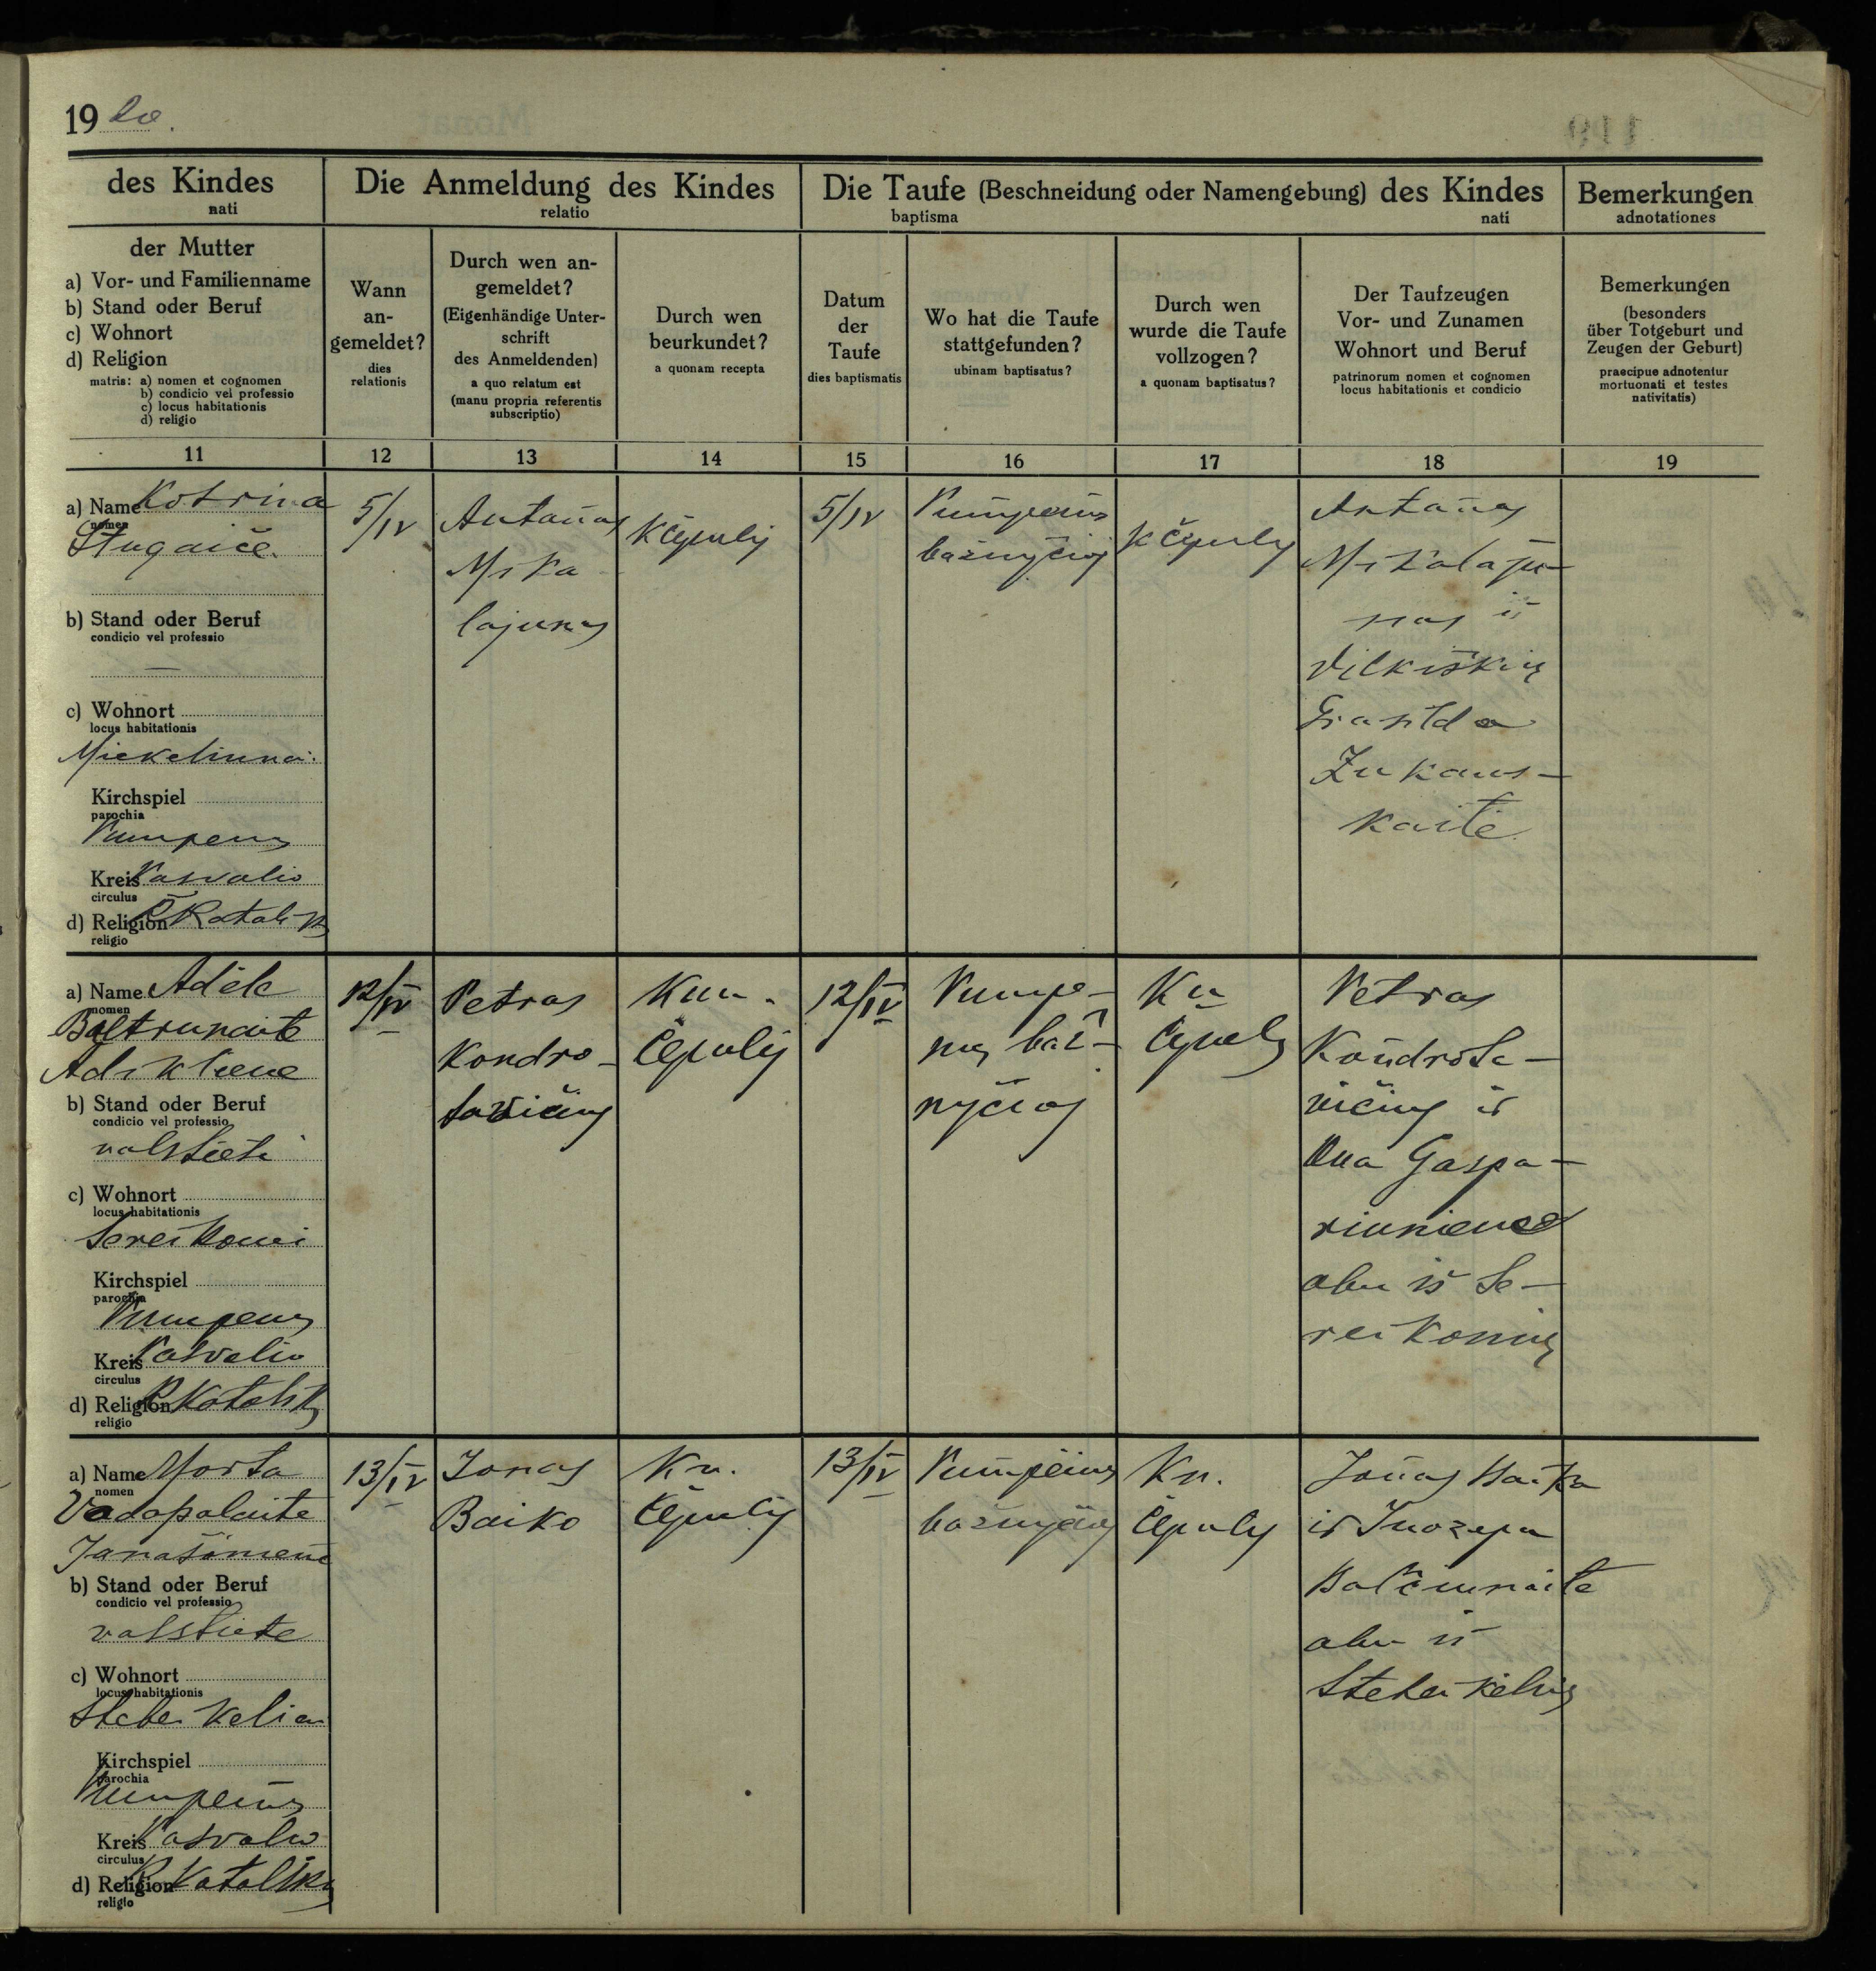 19 20.
des Kindes
nati
Die Anmeldung des Kindes
relatio
Die Taufe (Beschneidung oder Namengebung) des Kindes
baptisma nati
Bemerkungen
adnotationes
der Mutter
a) Vor- und Familienname
b) Stand oder Beruf
c) Wohnort
d) Religion
matris: a) nomen et cognomen
b) condicio vel professio
c) locus habitationis
d) religio
Wann
an-
gemeldet?
dies
relationis
Durch wen an-
gemeldet?
(Eigenhändige Unter-
schrift
des Anmeldenden)
a quo relatum est
(manu propria referentis
subscriptio)
Durch wen
beurkundet?
a quonam recepta
Datum
der
Taufe
dies baptismatis
Wo hat die Taufe
stattgefunden?
ubinam baptisatus?
Durch wen
wurde die Taufe
vollzogen?
a quonam baptisatus?
Der Taufzeugen
Vor- und Zunamen
Wohnort und Beruf
patrinorum nomen et cognomen
locus habitationis et condicio
Bemerkungen
(besonders
über Totgeburt und
Zeugen der Geburt)
praecipue adnotentur
mortuonati et testes
nativitatis)
11 12 13 14 15 16 17 18 19
a) Name Kotrina
nomen
b) Stand oder Beruf
condicio vel professio
—
c) Wohnort
locus habitationis
Kirchspiel
parochia
Pumpėnų
Kreis Pasvalio
circulus
d) Religion R Katalikų
religio
5/IV
Antanas
Mika
lajunas
K Čepulis
5/IV
Pumpėnų
bažnyčioj
K Čepulis
Antanas
Mikalaju-
nas iš
Vilkiškių
Zukaus-
kaitė
a) Name Adėlė
nomen
Baltrunaitė
b) Stand oder Beruf
condicio vel professio
valstietė
c) Wohnort
locus habitationis
Sereikonii
Kirchspiel
parochia
Pumpėnų
Kreis Pasvalio
circulus
d) Religion R Katalikų
religio
12/IV
Petras
Kondro-
tavičius
Kun.
Čepulis
12/IV
Pumpė-
nų baž-
nyčioj
Kn
Čepulis
Petras
Kondrota-
vičius ir
Ona Gaspa-
riunienė
abu iš Se-
reikonių
a) Name Morta
nomen
Vadapalaitė
Janašiūnienė
b) Stand oder Beruf
condicio vel professio
valstietė
c) Wohnort
locus habitationis
Kirchspiel
parochia
Pumpėnų
Kreis Pasvalio
circulus
d) Religion R Katalikų
religio
13/IV
Jonas
Baiko
Kn.
Čepulis
13/IV
Pumpėnų
bažnyčioj
Kn.
Čepulis
Jonas Baika
ir Juozapa
Balčiunaitė
abu iš